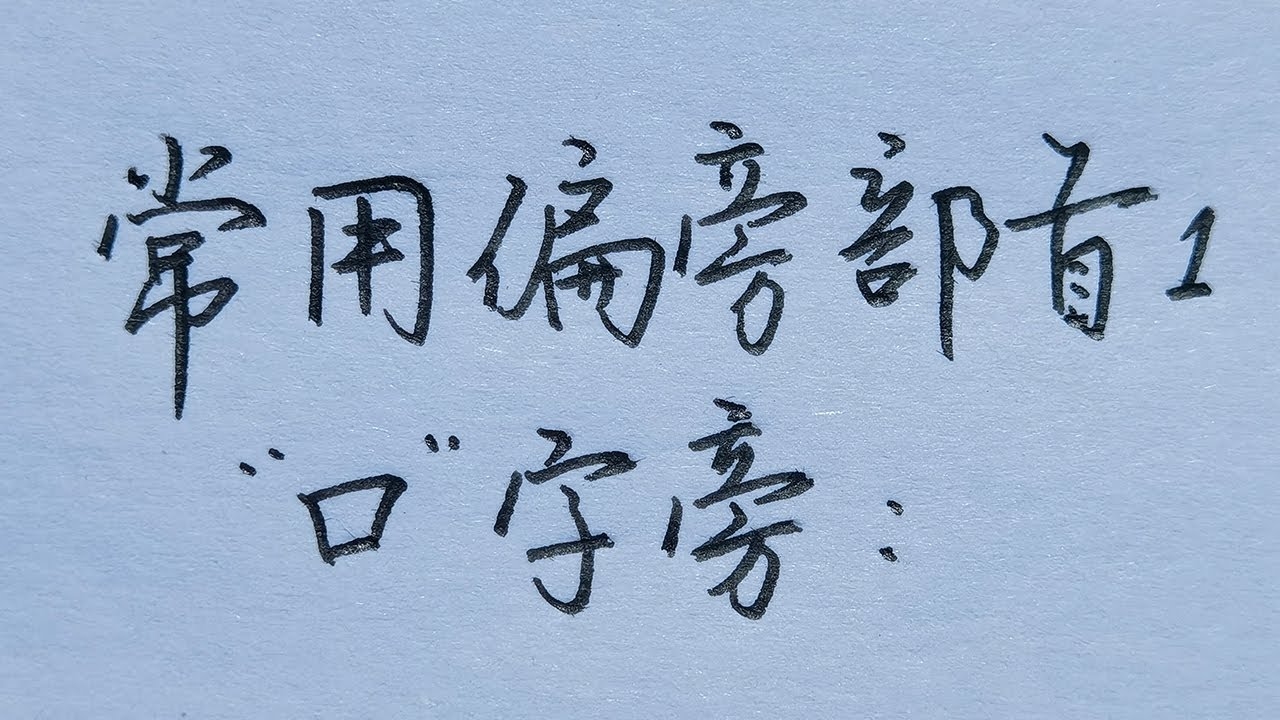 常用偏旁部首1
“口”字旁：